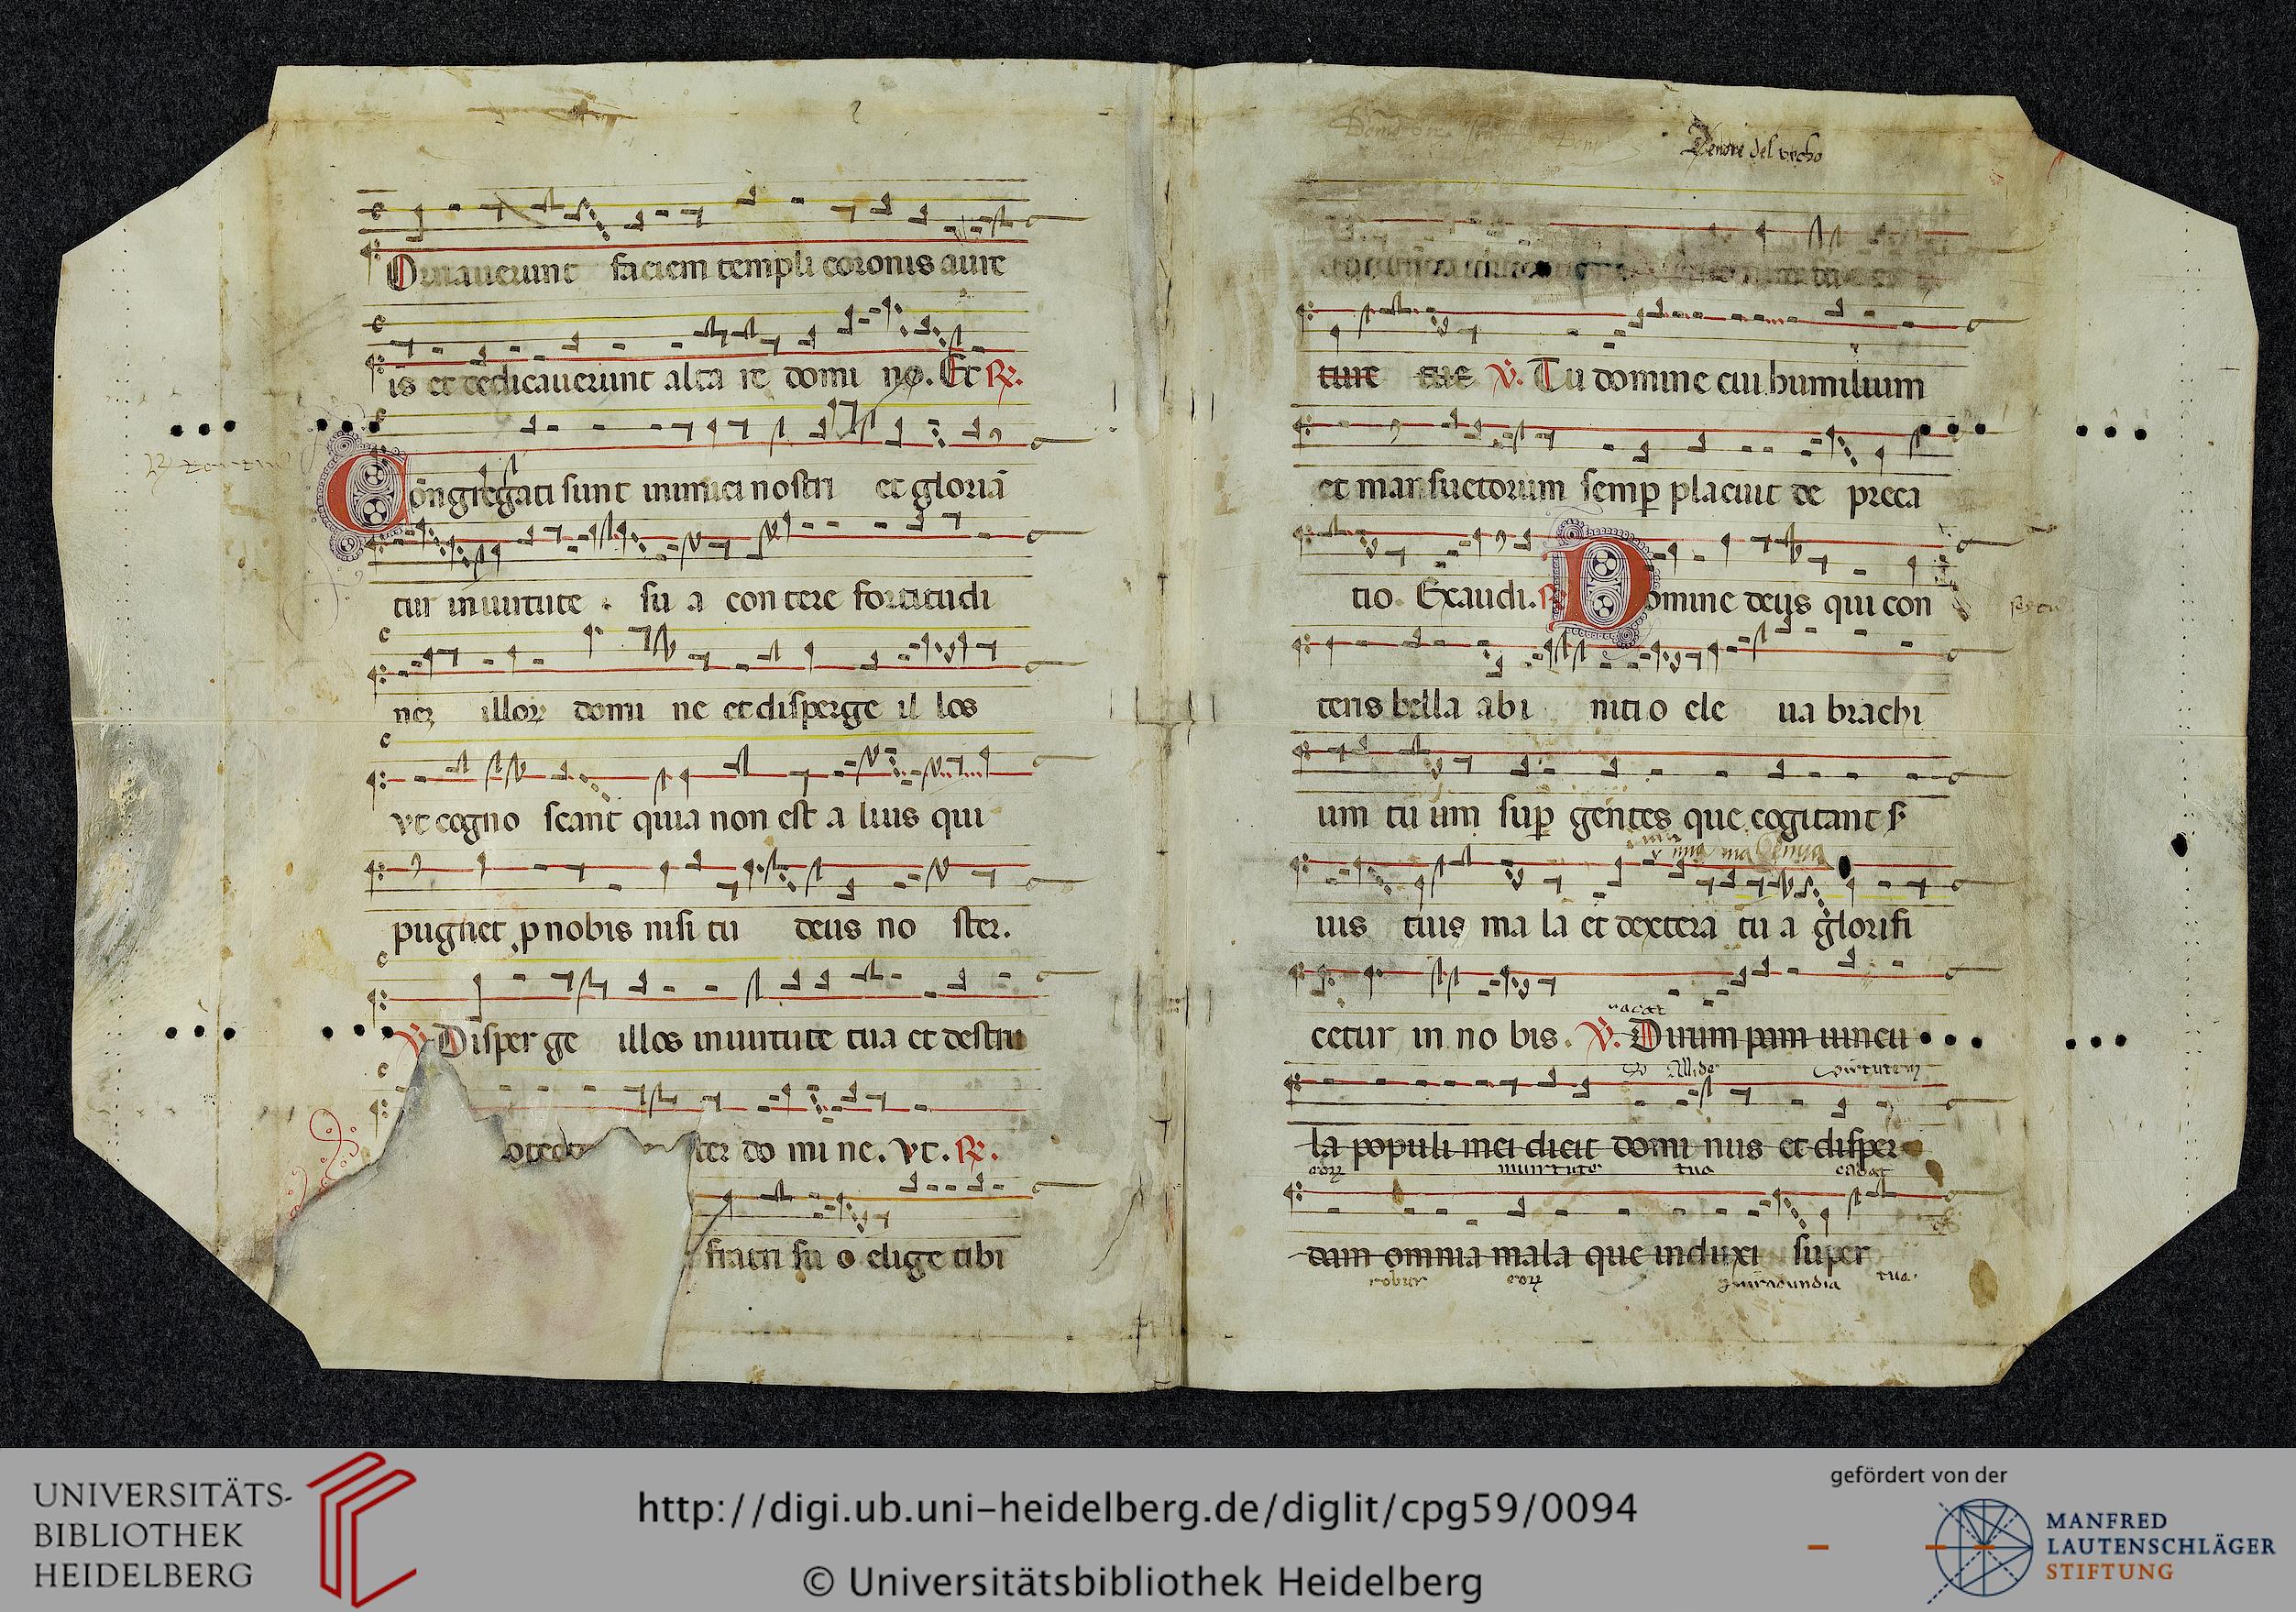 Ornauerunt faciem templi coronis aure
is et dedicauerunt alta re domi no. Et ℟.
Congregati sunt inimici nostri et gloriā
tur in uirtute su a con tere fortitudi
neʒ illoꝝ domi ne et disperge il los
vt cogno scant quia non est a lius qui
pugnet ꝓ nobis nisi tu deus no ster.
℣. Disper ge illos in uirtute tua et destru
ter do mi ne. vt. ℟.
fratri su o elige tibi
Tenore del vecho
ture tue ℣. Tu domine cui humilium
et mansuetorum semꝑ placuit de preca
tio. Exaudi. ℟. Domine deus qui con
teris bella ab i nitio ele ua brachi
um tu um suꝑ gentes que cogitant s̵
uis tuis ma la et dextera tu a glorifi
uacat
cetur in no bis. ℣. Dirum pam uincu
Allide virtutem
la populi mei dicit domi nus et disper
eoꝝ in uirtute tua cadat
dam omnia mala que induxi super
robur eoꝝ in iracundia tua.
UNIVERSITÄTS-
BIBLIOTHEK
HEIDELBERG
http://digi.ub.uni-heidelberg.de/diglit/cpg59/0094
© Universitätsbibliothek Heidelberg
gefördert von der
MANFRED
LAUTENSCHLÄGER
STIFTUNG